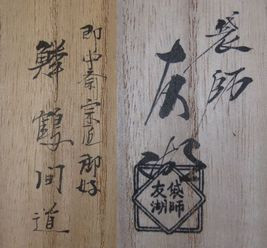 袋師
友湖
袋師
友湖
即中斎宗匠御好
鱗鶴間道